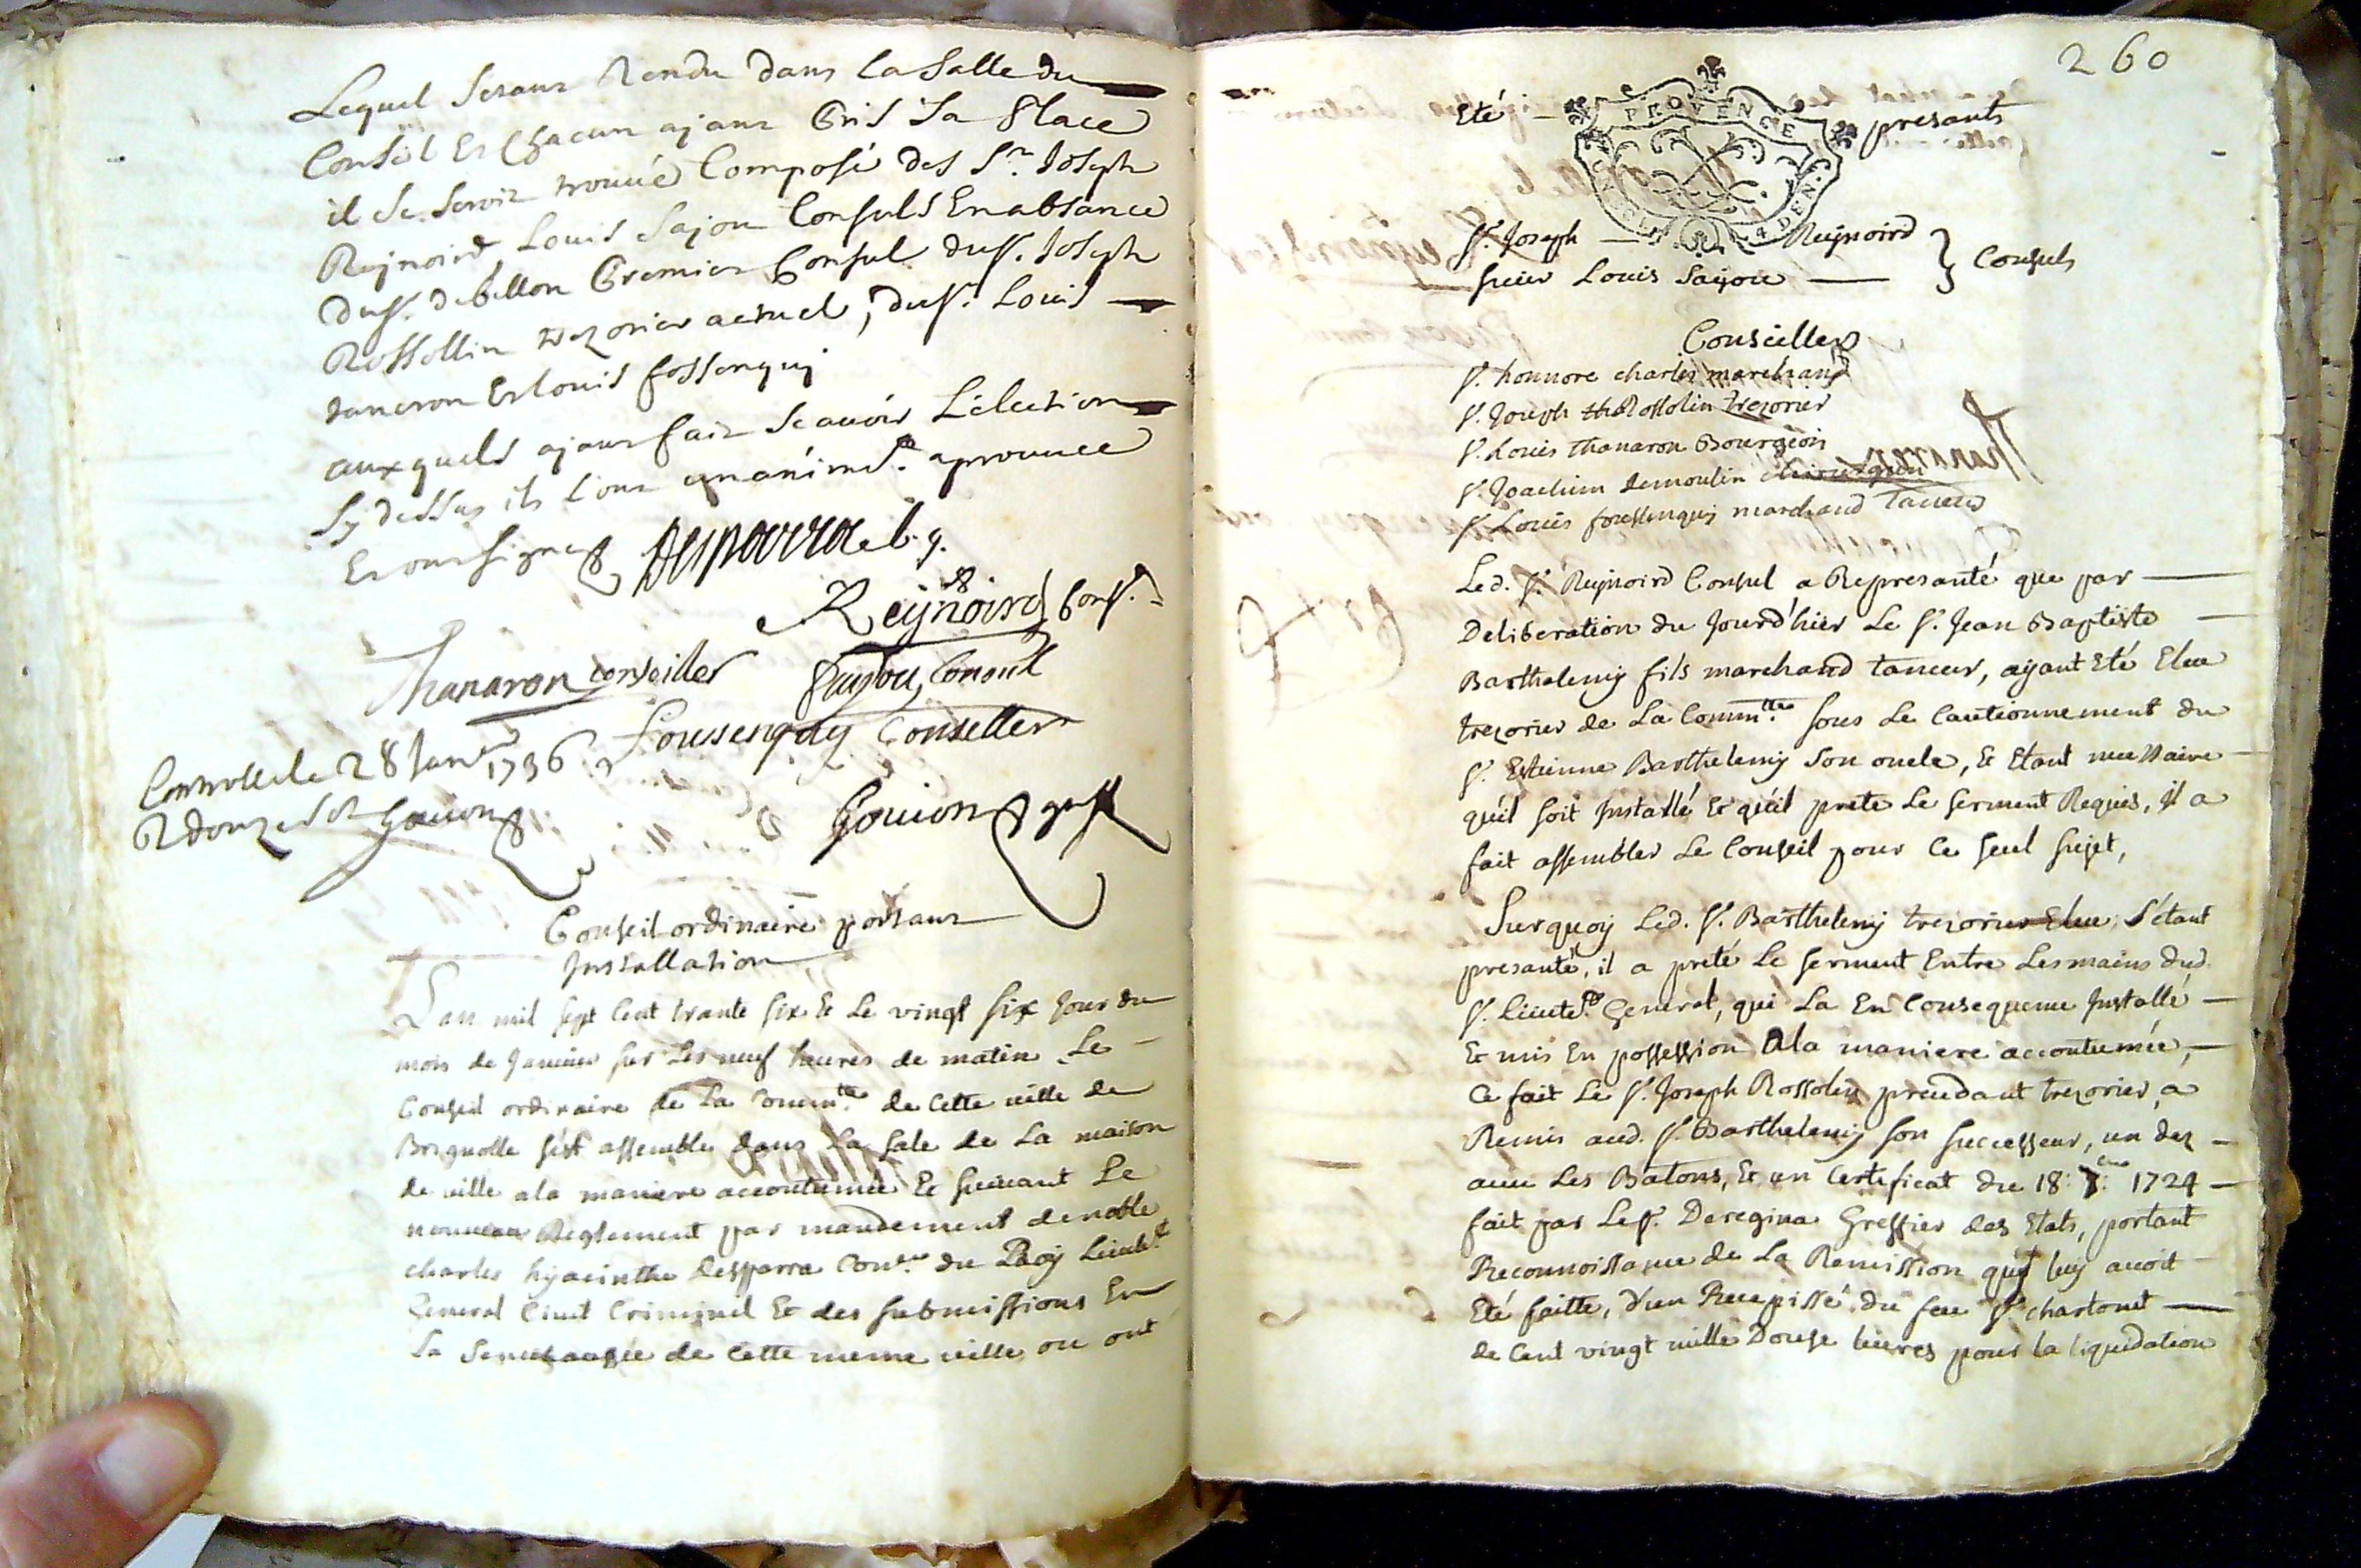 Lequel s'etant Rendu dans la Salle du
Conseil Et Chacun ajant Pris Sa Place
il Se Seroit trouvé Composé des Sr. Joseph
Reynoird, Louis Sajou Consuls En absance
du Sr. debillon Premier Consul du Sr. Joseph
Rossollin trezorier actuel, du Sr. Louis
tanaron Et louis fossenquy
auxquels ajant fait Scauoir L'election
Sy dessus ils L'ont unanimt. aprouuée
Et ont signé Desparra l. g.
Reynoird Cons.
Thanaron conseiller Sayou Consul
Foussenquy Conseller
Controllé le 28 Janr. 1736
R douze s Gouion
Gouion greff
Conseil ordinaire portant
Installation
L'an mil sept Cent trante six Et Le vingt six Jour du
mois de Januier sur Les neuf heures de matin Le
Conseil ordinaire de La Commté. de Cette ville de
Brignolle s'est assemblé dans La sale de La maison
de uille a la maniere accoutumée Et suiuant Le
nouueau Reglement par mandement de noble
charles hyacinthe desparra Conser. du Roy Lieutent
General Ciuil Criminel Et des submissions En
La Senechaussée de Cette meme uille ou ont
260
Eté presants
PROVENCE
4 DEN.
Sr. Joseph Reynoird
sieur Louis Sayou
Consuls
Conseillers
Sr. honnore charles marchand
Sr. Joseph Rossolin trezorier
Sr. Louis thanaron Bourgeois
Sr. Joachim demoulin chirurgien
Sr. Louis foussenquy marchand Taneur
Led. Sr. Reynoird Consul a Representé que par
Deliberation du Jourd'hier Le Sr. Jean Baptiste
Barthelemy fils marchand tanneur, ayant Eté Eleu
trezorier de La Commté. sous Le Cautionnement du
Sr. Estienne Barthelemy Son oncle, Et Etant necessaire
qu'il soit Installé Et qu'il prete Le serment Requis, Il a
fait assembler Le Conseil pour Ce seul sujet,
Surquoy Led. Sr. Barthelemy trezorier Eleu, s'étant
presanté, il a preté Le serment Entre Les mains dud.
Sr. Lieutet. General, qui La En Consequence Installé
Et mis En possession A la maniere accoutumée,
Ce fait Le Sr. Joseph Rossolin precedant trezorier, a
Remis aud. Sr. Barthelemy son successeur, un dez
auec Les Batons, Et un Certificat du 18: 1724
fait par Le Sr. Deregina Greffier des Etats, portant
Reconnoissance de La Remission qui luy auoit
Eté faitte, d'un Recepissé du feu Sr. chartonet
de Cent vingt mille Douse liures pour la liquidation